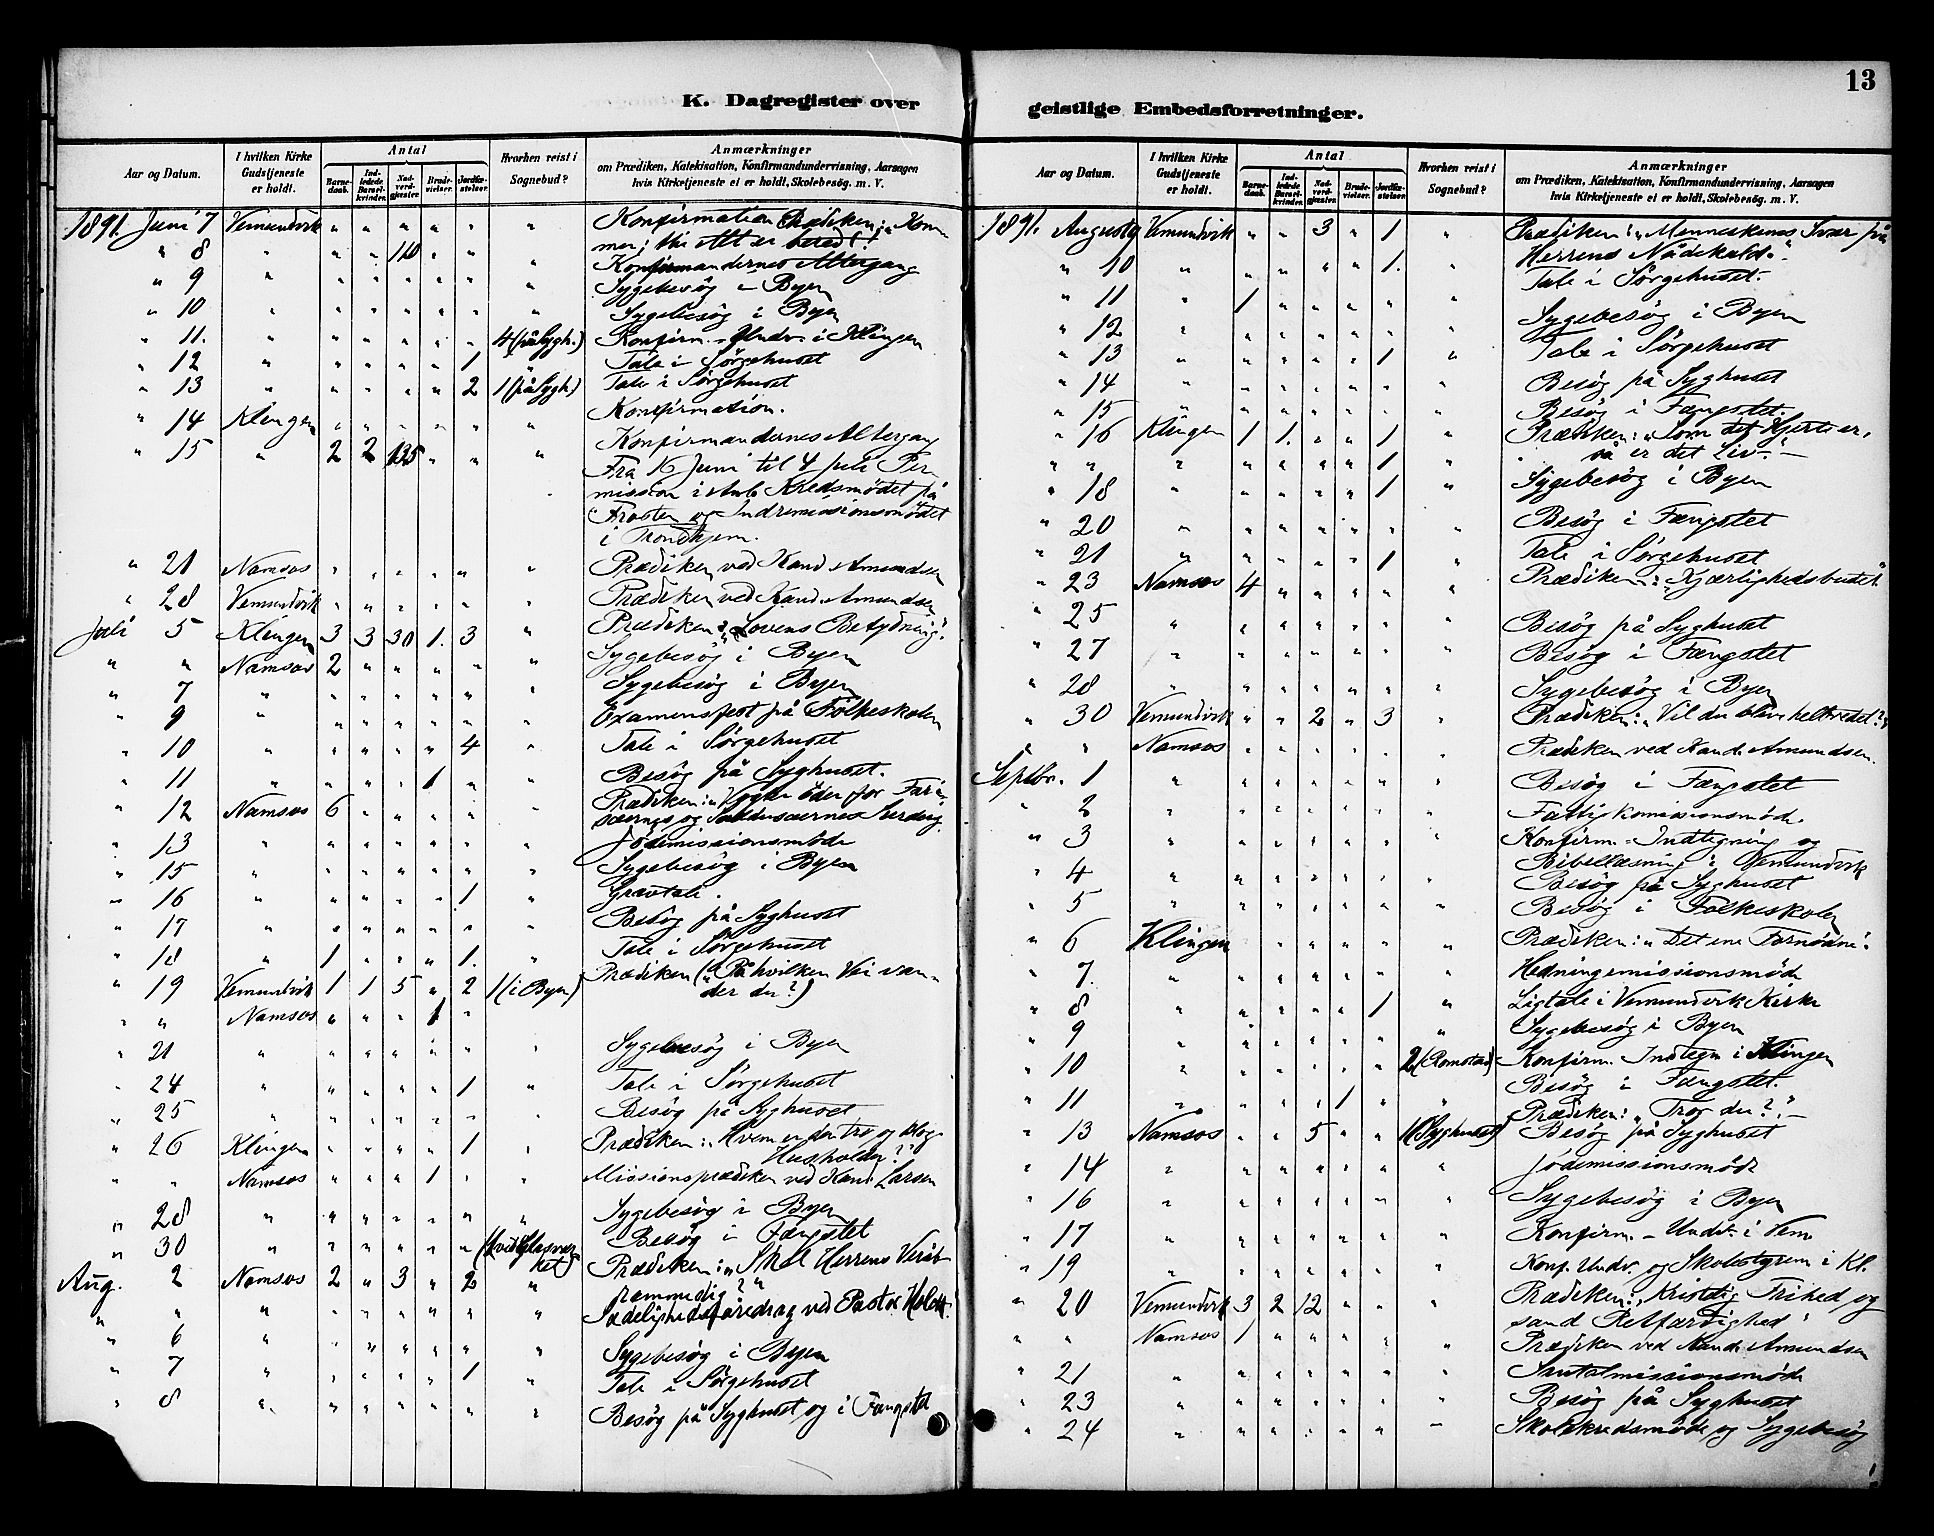 K. Dagregister over geistlige Embedsforretninger.
13
Aar og Datum. I hvilken Kirke Gudstjeneste er holdt. Antal Barnedaab. Indledede Barselkvinder. Nadverdgjester. Brudevielser. Jordfæstelser. Hvorhen reist i Sognebud? Anmærkninger om Prædiken, Katekisation, Konfirmandundervisning, Aarsagen hvis Kirketjeneste ei er holdt, Skolebesøg. m. V.
1891. Juni 7 Vemundvik " " " " " " Konfirmation Prædiken: "Kom
mer; thi Alt er beredt!
" 8 " " " 120 " " " Konfirmandernes Altergang
" 9 " " " " " " " Sygebesøg i Byen
" 10 " " " " " " " Sygebesøg i Byen
" 11. " " " " " " 4 (på Sygh.) Konfirm. Undv. i Klingen
" 12 " " " " " 1 " Tale i Sørgehuset
" 13 " " " " " 2 1 (på Sygh) Tale i Sørgehuset
" 14 Klingen " " " " " " Konfirmation.
" 15 " 2 2 135 " " " Konfirmandernes Altergang
Fra 16 Juni til 4 Juli Per
mission i Anl. Kredsmødet på
Frosten og Indremissionsmødet
i Trondhjem.
" 21 Namsos " " " " " " Prædiken ved Kand. Amundsen
" 28 Vemundvik " " " " " " Prædiken ved Kand. Amundsen
Juli 5 Klingen 3 3 30 1. 3 " Prædiken: "Lovens Betydning".
" " Namsos 2 " " " " " Sygebesøg i Byen
" 7 " " " " " " " Sygebesøg i Byen
" 9 " " " " " " " Examensfest på Folkeskolen
" 10 " " " " " 4 " Tale i Sørgehuset
" 11 " " " " 1 " " Besøg på Syghuset.
" 12 Namsos 6 " " " " " Prædiken: "Vogter eder for Fari
sæernes og Saddusæernes Surdeig
" 13 " " " " " " " Jødemissionsmøde
" 15 " " " " " " " Sygebesøg i Byen
" 16 " " " " " 1 " Gravtale.
" 17 " " " " " " " Besøg på Syghuset
" 18 " 1 " " " 1. " Tale i Sørgehuset
" 19 Vemundvik 1 1 5 " 2 1 (i Byen) Prædiken ("På hvilken Vei van
der du?)
" " Namsos " " " 1 "
" 21 " " " " " " " Sygebesøg i Byen
" 24 " " " " " 1 " Tale i Sørgehuset
" 25 " " " " " " " Besøg på Syghuset
" 26 Klingen " " " " 1 " Prædiken: "Hvem er den tro og klog
Husholder?"
" " Namsos " " " 1 " " Missionsprædiken ved Kand. Larsen
" 28 " " " " " " " Sygebesøg i Byen
" 30 " " " " " " (1 ved Glasvær
ket) Besøg i Fængslet
Aug. 2 Namsos 2 " 3 " 2 " Prædiken: "Skal Herrens Veiæt
" " " " " " " " " Sædelighedsforedrag ved Pastor
" 6 " " " " " " " Sygebesøg i Byen
" 7 " " " " " 1 " Tale i Sørgehuset
" 8 " " " " " " " Besøg på Syghuset og i Fængslet
Aar og Datum. I hvilken Kirke Gudstjeneste er holdt. Antal Barnedaab. Indledede Barselkvinder. Nadverdgjester. Brudevielser. Jordfæstelser. Hvorhen reist i Sognebud? Anmærkninger om Prædiken, Katekisation, Konfirmandundervisning, Aarsagen hvis Kirketjeneste ei er holdt, Skolebesøg. m. V.
1891. August 9 Vemundvik " " 3 " 1 " Prædiken: "Menneskenes Svar på
Herrens Nådekald."
" 10 " " " " " 1. " Tale i Sørgehuset.
" 11 " 1 " " " " " Sygebesøg i Byen
" 12 " " " " " " " Tale i Sørgehuset
" 13 " " " " " 1 " Besøg på Syghuset
" 14 " " " " " " "
" 15 " " " " " " " Besøg i Fængslet.
" 16 Klingen 1 1. " " 1 " Prædiken: "Som det Hjerte er,
så er det Liv."
" " " " " " " 1 " Sygebesøg i Byen
" 18 " " " " " 1 "
" 20 " " " " " " " Besøg i Fængslet
" 21 " " " " " 1 " Tale i Sørgehuset
" 23 Namsos 4 " " " " " Prædiken: "Kjærlighedsbudet"
" 25 " " " " " " " Besøg på Syghuset
" 27 " " " " " " " Besøg i Fængslet
" 28 " " " " " " " Sygebesøg i Byen
" 30 Vemundvik " " 2 " 3 " Prædiken: "Vil du blive helbredet?"
" " Namsos " " " " " " Prædiken ved Kand. Amundsen.
Septbr. 1 " " " " " " " Besøg i Fængslet
" 2 " " " " " " " Fattigkomissionsmøde
" 3 " " " " " " " Konfirm.-Indtegning og
Bibellæsning i Vemundvik
" 4 " " " " " " " Besøg på Syghuset
" 5 " " " " " " " Besøg i Folkeskolen
" 6 Klingen " " " " " " Prædiken: "Det ene Fornødne".
" 7. " " " " " " " Hedningemissionsmøde
" 8 " " " " " 1 " Ligtale i Vemundvik Kirke
" 9 " " " " " " " Sygebesøg i Byen
" 10 " " " " " " 2 (Romstad) Konfirm. Indtegn i Klingen
" 11 " " " " 1 " " Besøg i Fængslet.
Prædiken: "Tror du?"
" 13 Namsos " " 5 " " 1 (Syghuset) Besøg på Syghuset
" 14 " " " " " " " Jødemissionsmøde
" 16 " " " " " " " Sygebesøg i Byen
" 17 " " " " " " " Konfirm.-Undv. i Vem
" 19 " " " " " " " Konf. Undv. og Skolestyrem i Kl.
" 20 Vemundvik 3 2 12 " " " Prædiken: "Kristelig Frihed og
sand Retfærdighed"
" " Namsos 1 " " " " " Prædiken ved Kand. Amundsen
" 21 " " " " " " " Santalmissionsmøde
" 23 " " " " " " " Besøg på Syghuset
" 24 " " " " " " " Skolekredsmøde og Sygebesøg